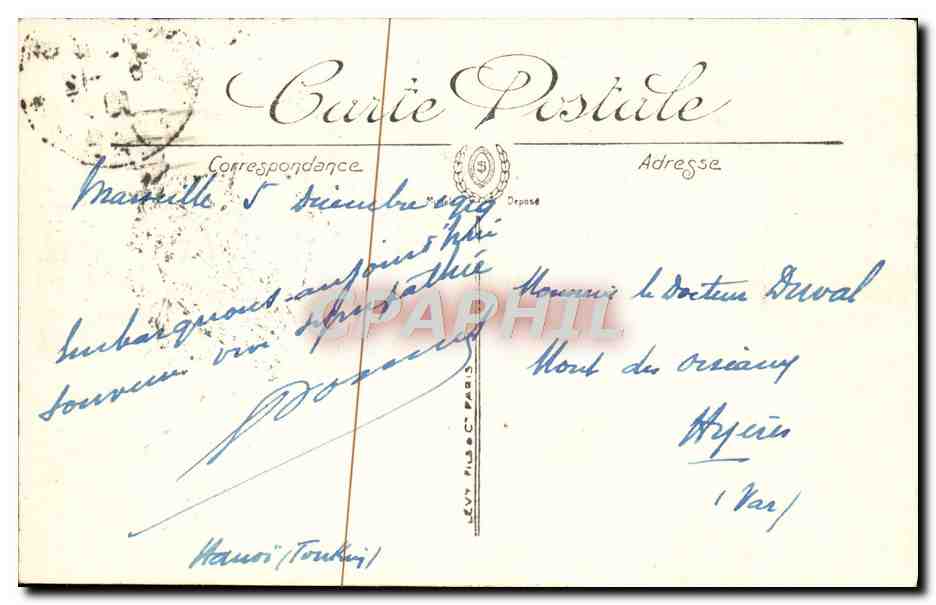 Carte Postale
Correspondance
Adresse
Déposé
Marseille 5 Décembre 1919
Embarquons aujourd'hui
Souvenir vive sympathie
Monsieur le Docteur Duval
Mont des oiseaux
Hyères
(Var)
Hanoï (Tonkin)
LÉVY FILS & Cie PARIS
CPAPHIL